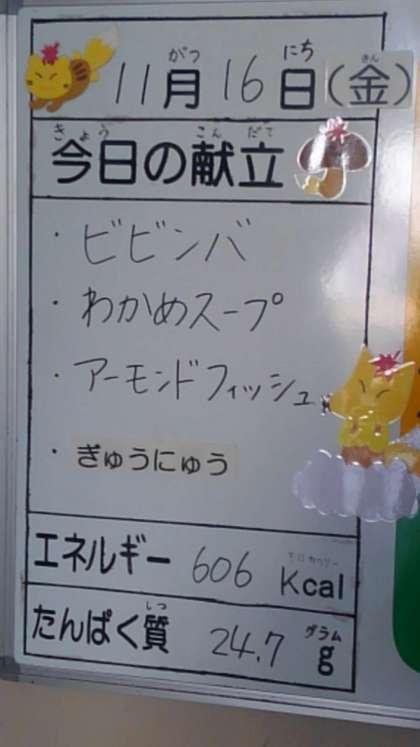 がつ にち きん
11月16日(金)
きょう こん だて
今日の献立
・ビビンバ
・わかめスープ
・アーモンドフィッシュ
・ぎゅうにゅう
キロカロリー
エネルギー 606 Kcal
しつ グラム
たんぱく質 24.7 g